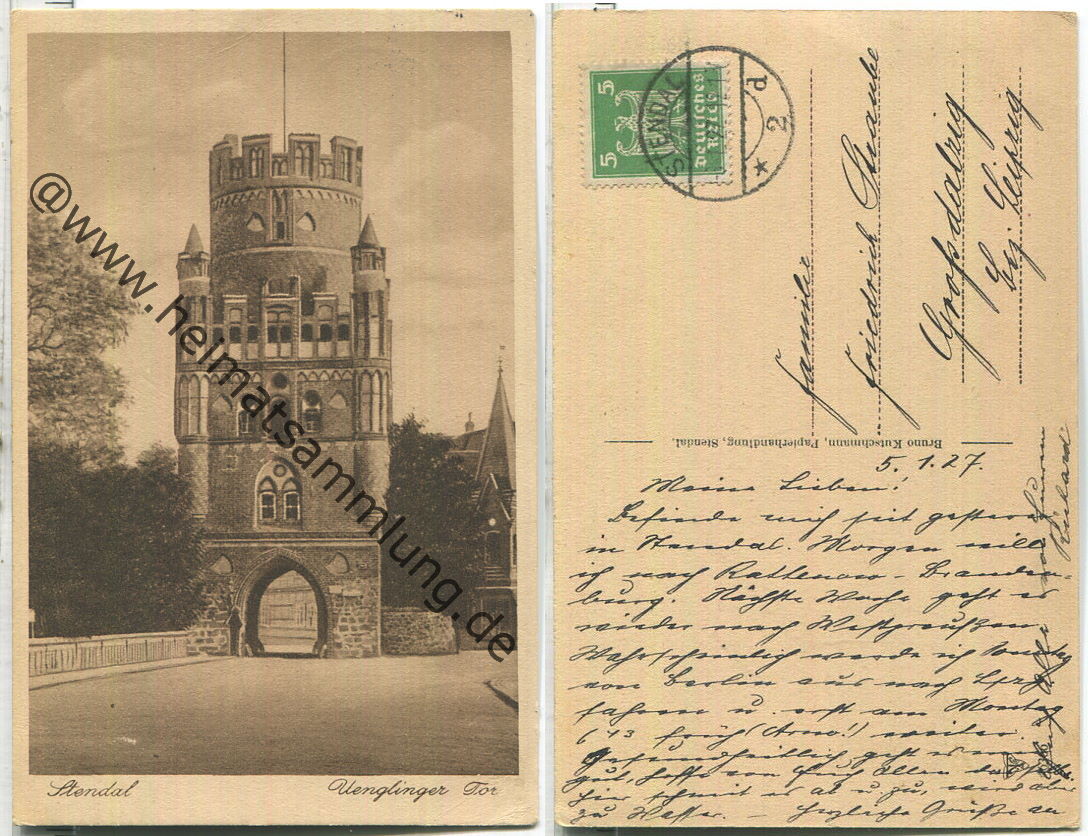 @www.heimatsammlung.de
Stendal
Uenglinger Tor
STENDAL
d
2
5 5
Deutsches
Reich
Familie
Friedrich
Großdalzig
bez. Leipzig
Bruno Kutschmann, Papierhandlung, Stendal.
5.1.27.
Meine Lieben!
Befinde mich seit gestern
in Stendal. Morgen will
ich nach Rathenow - Branden-
burg. Nächste Woche geht es
wieder nach Westpreußen.
Wahrscheinlich werde ich Sonntag
von Berlin aus nach Lpzg
fahren u. erst am Montag
6 13 früh weiter.
Gesundheitlich geht es mir
gut, hoffe von Euch Allen dasselbe.
Hier schneit es ab u. zu, wird aber
zu Wasser. — Herzliche Grüße an
Alle von Eurem
Richard